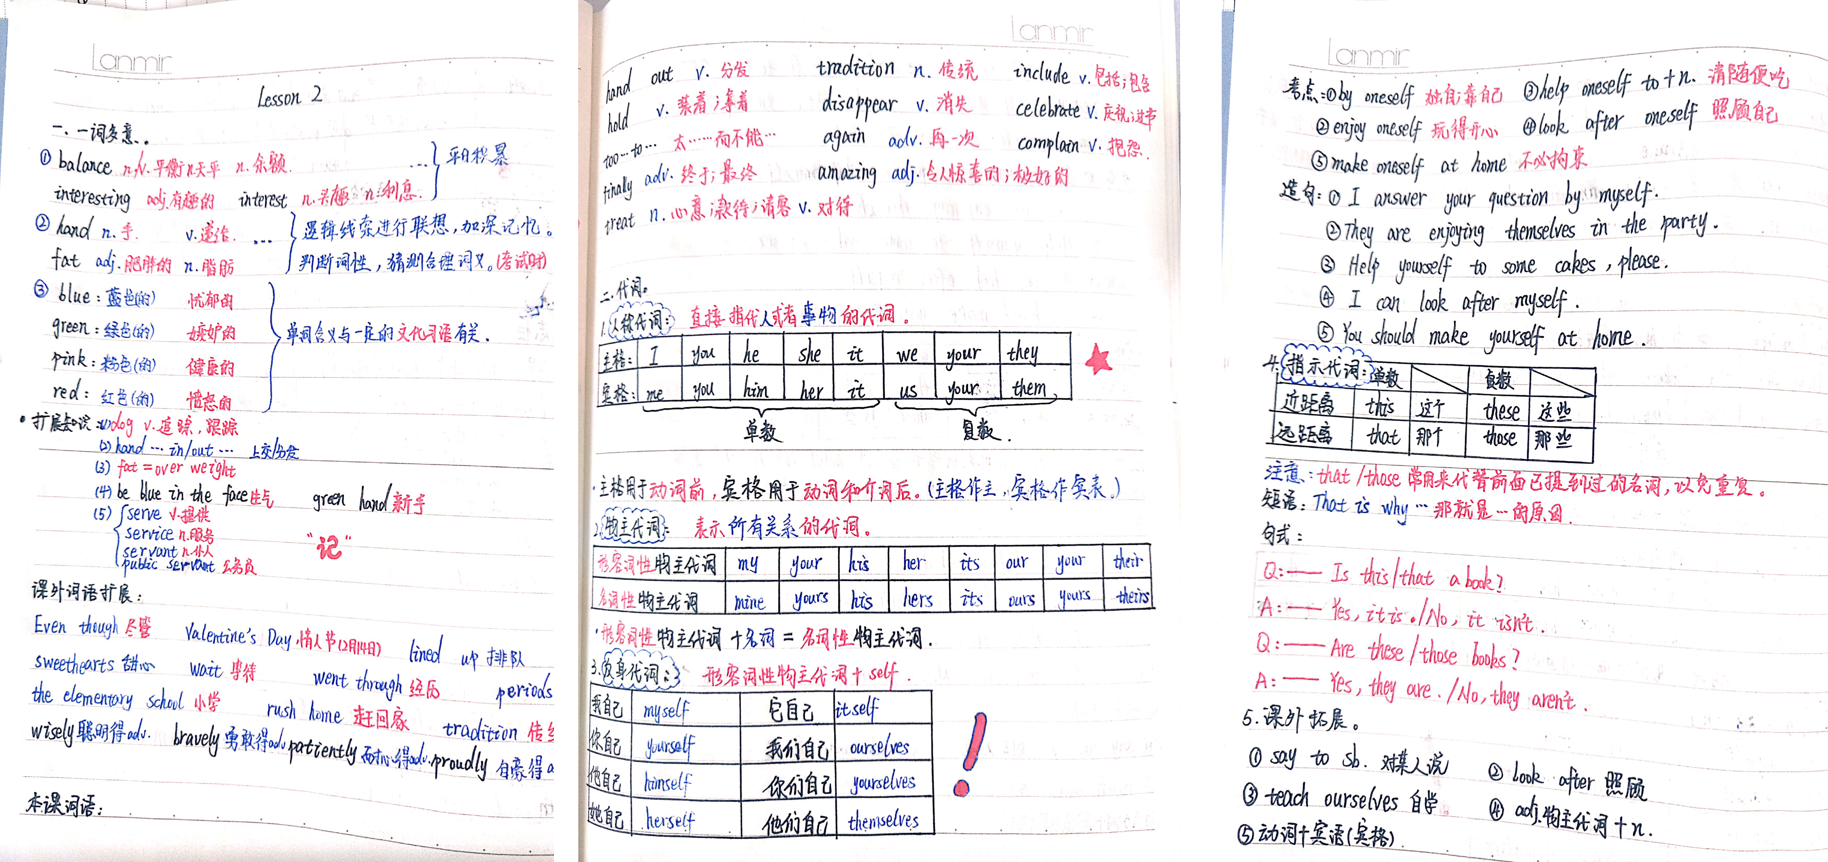 Lanmir
Lesson 2
一、一词多意..
① balance n./v.平衡 n.天平 n.余额 … 平日积累
interesting adj.有趣的 interest n.兴趣 n.利息.
② hand n.手. v.递给. … 逻辑线索进行联想,加深记忆。
fat adj.肥胖的 n.脂肪 判断词性,猜测合理词义。(考试时)
③ blue:蓝色(的) 忧郁的
green:绿色(的) 嫉妒的 单词含义与一定的文化习语有关.
pink:粉色(的) 健康的
red:红色(的) 愤怒的
·扩展知识:(1)dog v.追踪,跟踪
(2)hand … in/out … 上交/分发
(3) fat = over weight
(4) be blue in the face生气 green hand 新手
(5) serve v.提供
service n.服务 "记"
servant n.仆人
public servant 公务员
课外词语扩展:
Even though 尽管 Valentine's Day 情人节(2月14日) lined up 排队
sweethearts 甜心 wait 等待 went through 经历 periods
the elementary school 小学 rush home 赶回家 tradition 传
wisely聪明得adv. bravely 勇敢得adv patiently 耐心得adv. proudly 自豪得a
本课词语:
Lanmir
hand out v. 分发 tradition n. 传统 include v.包括;包含
hold v. 装着;拿着 disappear v. 消失 celebrate v.庆祝;过节
too…to… 太……而不能… again adv. 再一次 complain v. 抱怨.
finally adv. 终于;最终 amazing adj.令人惊喜的;极好的
treat n.心意;款待;请客 v.对待
二.代词。
1.人称代词: 直接指代人或者事物的代词。
主格: I you he she it we your they
宾格: me you him her it us your them
单数 复数.
·主格用于动词前,宾格用于动词和介词后。(主格作主,宾格作宾表。)
2.物主代词: 表示所有关系的代词。
形容词性物主代词 my your his her its our your their
名词性物主代词 mine yours his hers its ours yours theirs
·形容词性物主代词+名词=名词性物主代词.
3.反身代词: 形容词性物主代词+self.
我自己 myself 它自己 itself
你自己 yourself 我们自己 ourselves
他自己 himself 你们自己 yourselves
她自己 herself 他们自己 themselves
!
Lanmir
考点:①by oneself 独自;靠自己 ③help oneself to+n. 请随便吃
②enjoy oneself 玩得开心 ④look after oneself 照顾自己
⑤make oneself at home 不必拘束
造句:① I answer your question by myself.
②They are enjoying themselves in the party.
③ Help yourself to some cakes, please.
④ I can look after myself.
⑤ You should make yourself at home.
4.指示代词: 单数 复数
近距离 this 这个 these 这些
远距离 that 那个 those 那些
注意:that/those常用来代替前面已提到过的名词,以免重复。
短语:That is why … 那就是…的原因.
句式:
Q:—— Is this/that a book?
A:—— Yes, it is./No, it isn't.
Q:—— Are these/those books?
A:—— Yes, they are./No, they aren't.
5.课外拓展。
① say to sb. 对某人说 ② look after 照顾
③ teach ourselves 自学 ④ adj.物主代词+n.
⑤动词+宾语(宾格)